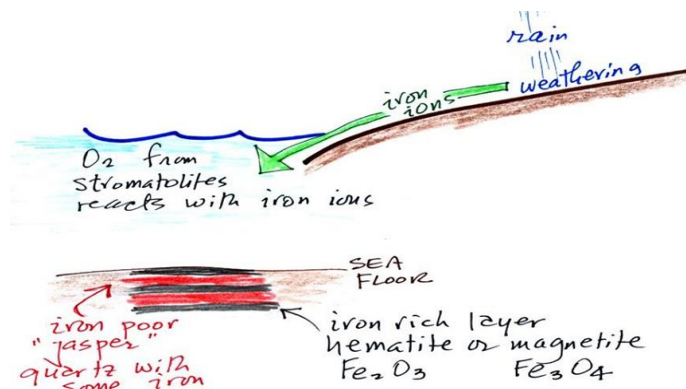 rain
weathering
iron
ions
O2 from
stromatolites
reacts with iron ions
SEA
FLOOR
iron poor
"jasper"
quartz with
some iron
iron rich layer
hematite or magnetite
Fe2O3 Fe3O4